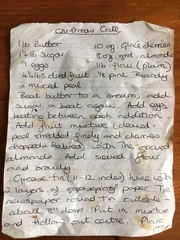 Christmas Cake
1 lb Butter 10 oz Glace cherries
1 lb Sugar 8 oz grd almonds
9 eggs 1 lb flour (plain)
4 lbs dried fruit ¼ pint Brandy
& mixed peel
Beat butter to a cream, add
Sugar & beat again. Add eggs
beating between each addition
Add fruit mixture (cleaned &
peel shredded finely and cherries
chopped & halved) with the ground
almonds. Add sieved flour
and brandy.
Grease tin (11-12 inches) line with
2 layers of greaseproof paper. Tie
newspaper round tin outside -
about 8" deep. Put in mixture
and hollow out centre.